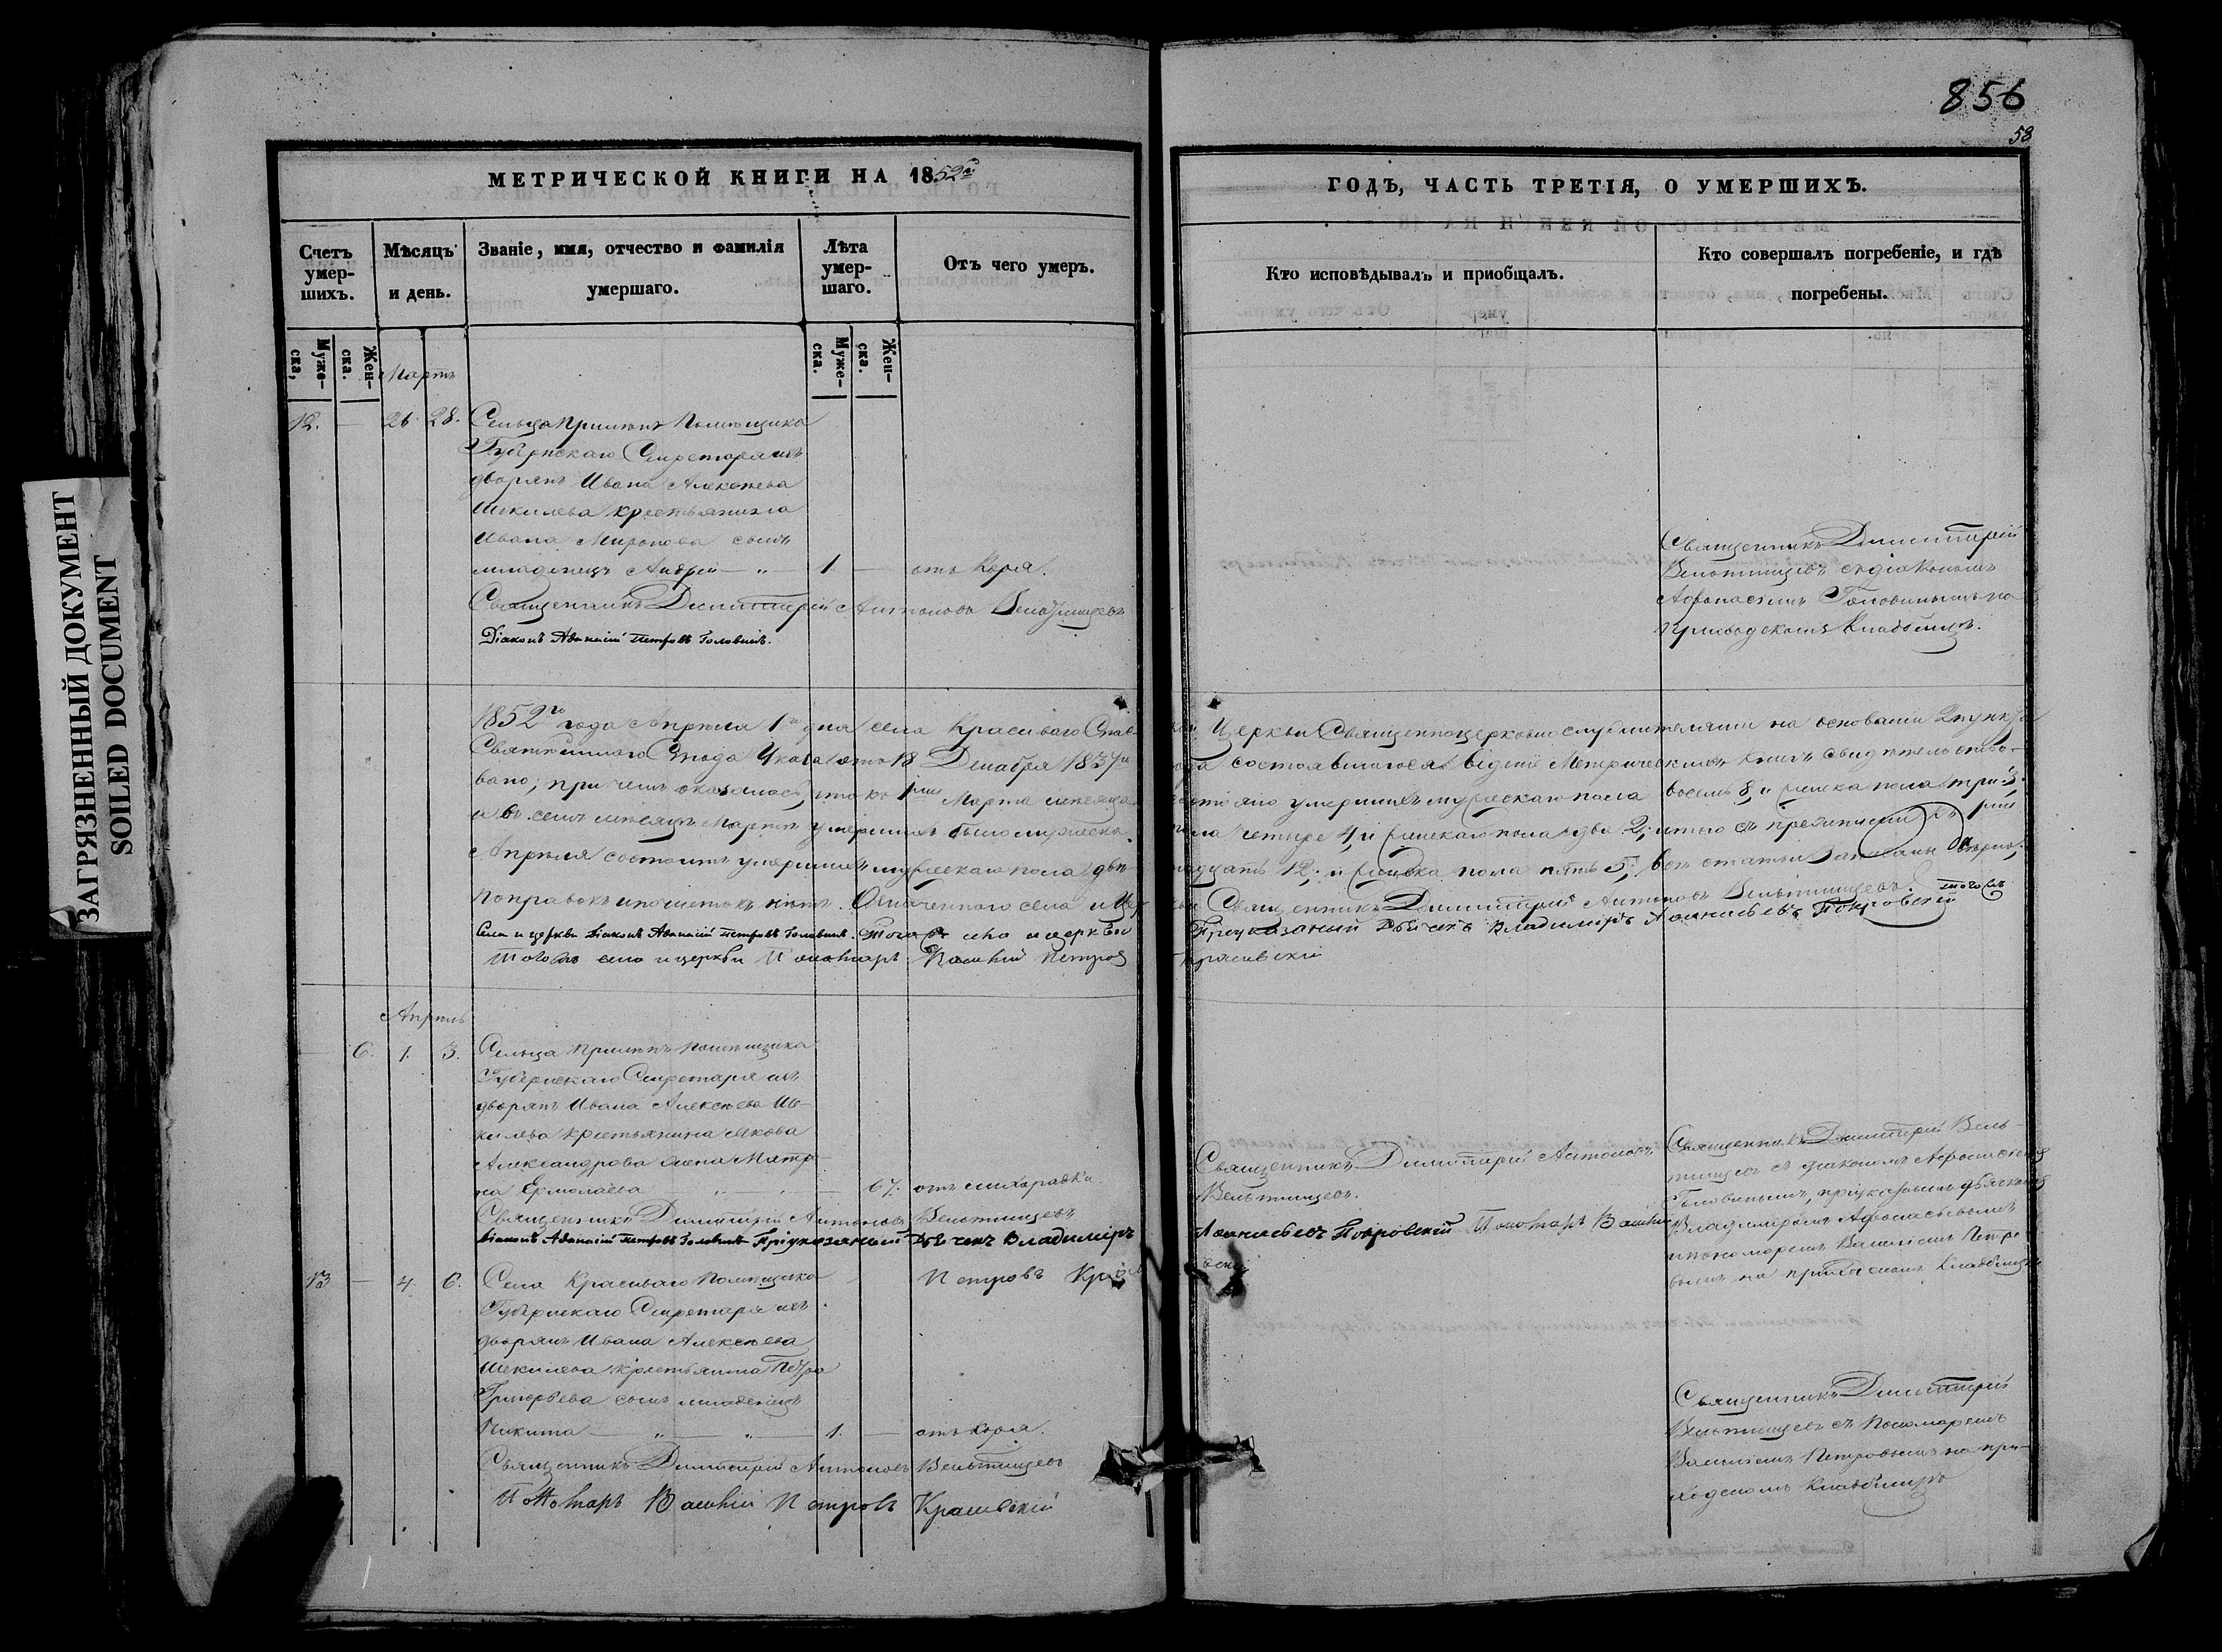 ЗАГРЯЗНЕННЫЙ ДОКУМЕНТ
SOILED DOCUMENT
856
58
МЕТРИЧЕСКОЙ КНИГИ НА 1852й
ГОДЪ, ЧАСТЬ ТРЕТІЯ, О УМЕРШИХЪ.
Счетъ умер-шихъ.
Мѣсяцъ и день.
Званіе, имя, отчество и фамилія умершаго.
Лѣта умер-шаго.
Отъ чего умеръ.
Кто исповѣдывалъ и приобщалъ.
Кто совершалъ погребеніе, и гдѣ погребены.
Муже-ска,
Жен-ска.
Муже-ска.
Жен-ска.
Мартъ
12. — 26. 28. Сельца Помѣщика
Губернскаго Секретаря изъ
дворянъ Ивана Алексѣева
Шекилева крестьянина
Ивана Миронова сынъ
младенецъ Андрей — „ — 1 — отъ Коря.
Священникъ Димитрій Антоновъ Вельтищевъ
Діаконъ Аѳанасій Петровъ Головинъ.
Священникъ Димитрій
Вельтищевъ съ діакономъ
Афонасіемъ Головинымъ на
приходскомъ кладбищѣ.
1852го года Апрѣля 1го дня села Красиваго Спас-
кой Церкви Священноцерковнослужителями на основаніи 2 пункта
Святѣйшаго Сѵнода Указа отъ 18 Декабря 1837го
года состоявшагося вѣденіе Метрическихъ книгъ свидѣтельство-
вано; при чемъ оказалось, что къ 1му Марта мѣсяца
состояло умершихъ мужескаго пола восемь 8, и женска пола три 3;
и въ семъ мѣсяцѣ Мартѣ умершихъ было мужеска
пола четыре 4, и женскаго пола два 2; итого съ прежними къ 1му
Апрѣля состоитъ умершихъ мужескаго пола двѣ-
надцать 12; и женска пола пять 5; всѣ статьи записаны вѣрно;
поправокъ и почистокъ нѣтъ. Означеннаго села и Цер-
кви Священникъ Димитрій Антоновъ Вельтищевъ. Тогожъ
Села и церкви Діаконъ Аѳанасій Петровъ Головинъ. Тогожъ села и церкви
Приуказаный Дьячекъ Владиміръ Аѳанасьевъ Покровскій
Тогожъ села и церкви Пономарь Василій Петровъ
Красивскій
Апрѣль
6. 1. 3. Сельца Помѣщика
Губернскаго Секретаря изъ
дворянъ Ивана Алексѣева Ше-
килева крестьянина Якова
Александрова жена Матре-
на Ермолаева „ — 67. отъ лихорадки.
Священникъ Димитрій Антоновъ Вельтищевъ
Діаконъ Аѳанасій Петровъ Головинъ Приуказаный Дьячекъ Владиміръ
Аѳанасьевъ Покровскій Пономарь Василій
Петровъ Красивскій
Священникъ Димитрій Антоновъ
Вельтищевъ.
Священникъ Димитрій Вель-
тищевъ съ діакономъ Афонасіемъ
Головинымъ, приуказнымъ дьячкомъ
Владиміромъ Афонасьевымъ
и пономаремъ Василіемъ Петро-
вымъ на приходскомъ кладбищѣ
13 — 4. 6. Села Красиваго Помѣщика
Губернскаго Секретаря изъ
дворянъ Ивана Алексѣева
Шекилева крестьянина Петра
Григорьева сынъ младенецъ
Никита — „ — „ — 1. — отъ коря.
Священникъ Димитрій Антоновъ Вельтищевъ
Пономарь Василій Петровъ Красивскій
Священникъ Димитрій
Вельтищевъ съ Пономаремъ
Василіемъ Петровымъ на при-
ходскомъ кладбищѣ